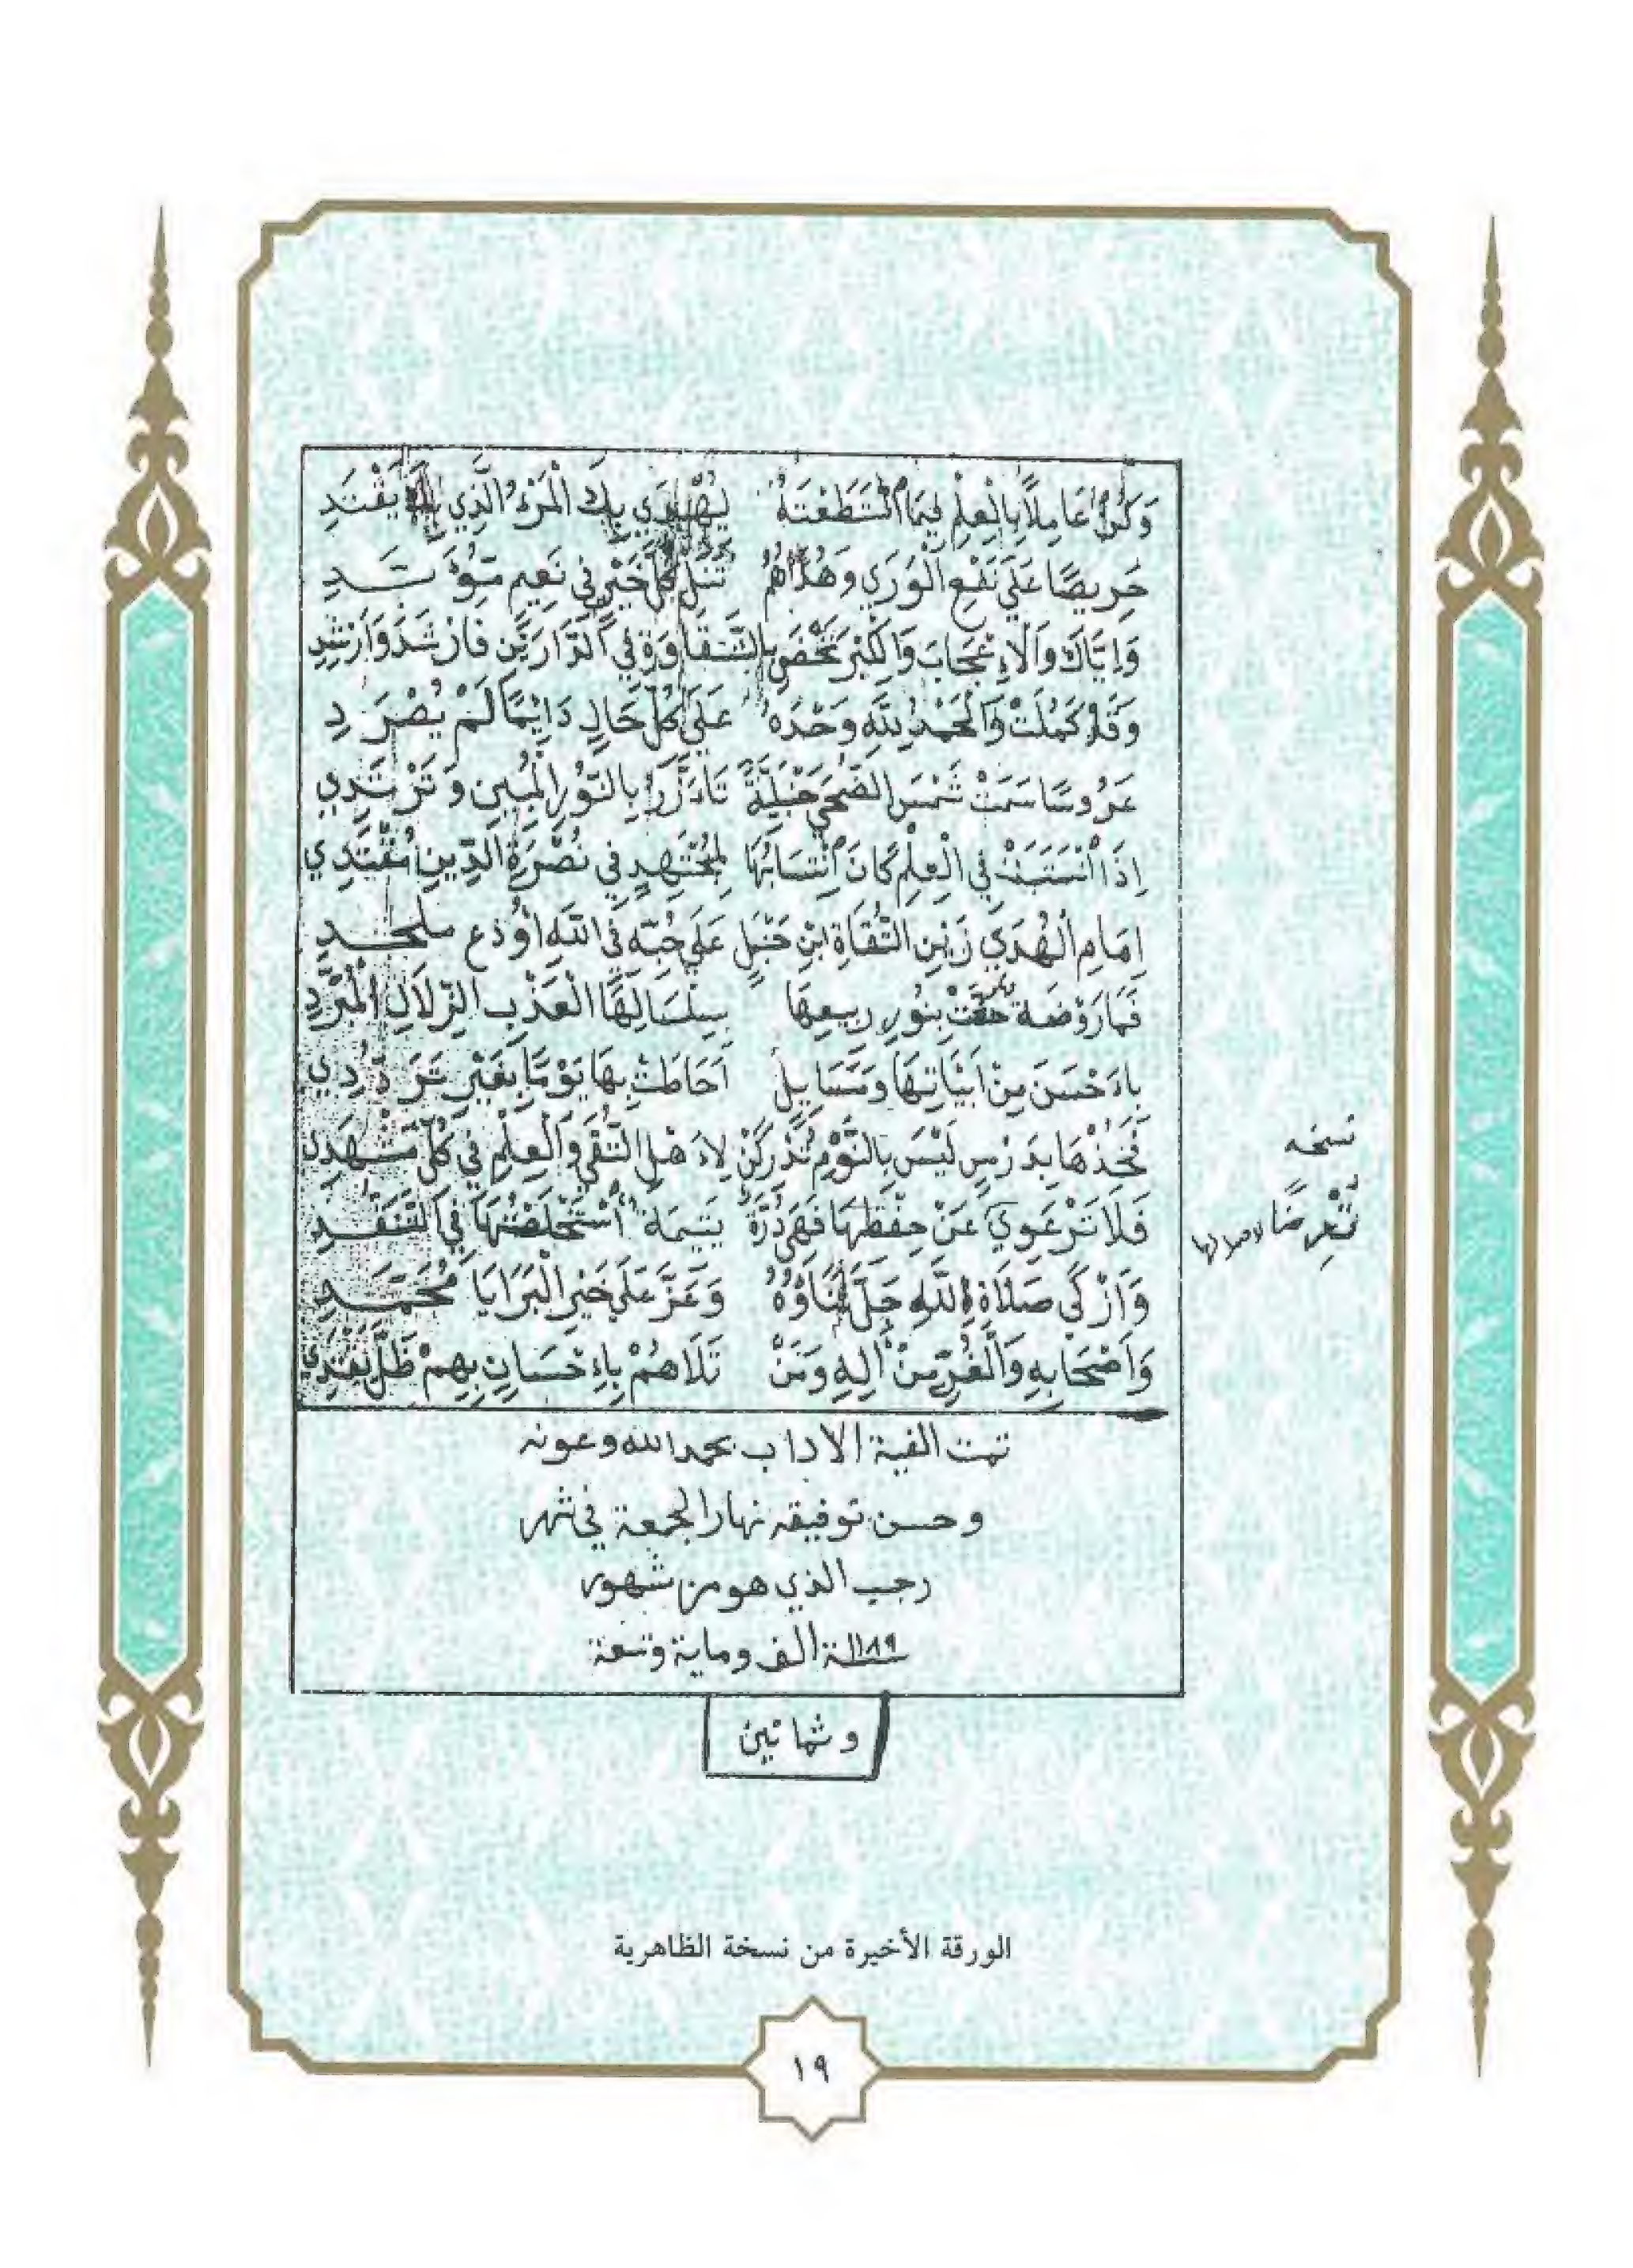 وَكُنْ عَامِلًا بِالْعِلْمِ فِيمَا اسْتَطَعْتَهُ لِيُهْدَي بِكَ الْمَرْءُ الَّذِي بِكَ يَقْتَدِ
حَرِيصًا عَلَي نَفْعِ الْوَرَي وَهُدَاهُمُ تَنَلْ كُلَّ خَيْرٍ فِي نَعِيمٍ مُؤَبَّدِ
وَإِيَّاكَ وَالْإِعْجَابَ وَالْكِبْرَ تَحْظَ بِالسَّعَادَةِ فِي الدَّارَيْنِ فَارْشُدْ وَأَرْشِدِ
وَقَدْ كَمُلَتْ وَالْحَمْدُ لِلَّهِ وَحْدَهُ عَلَي كُلِّ حَالٍ دَايِمًا لَمْ يُصْرَدِ
عَرُوسًا سَمَتْ شَمْسَ الضُّحَي حَنْبَلِيَّةً تَأَزَّرُ بِالنُّورِ الْمُبِينِ وَتَرْتَدِي
إِذَا انْتَسَبَتْ فِي الْعِلْمِ كَانَ انْتِسَابُهَا لِمُجْتَهِدٍ فِي نُصْرَةِ الدِّينِ مُقْتَدِي
إِمَامِ الْهُدَي زَيْنِ التُّقَاةِ ابْنِ حَنْبَلٍ عَلَي حُبِّهِ فِي اللَّهِ أُوذِعَ مُلْحَدِ
فَمَا رَوْضَة حُفَّتْ بِنُورِ رَبِيعِهَا بِسَلْسَالِهَا الْعَذْبِ الزُّلَالِ الْمُبَرَّدِ
بِأَحْسَنَ مِنْ أَبْيَاتِهَا وَمَسَايِلٍ أَحَاطَتْ بِهَا يَوْمًا بِغَيْرِ تَرَدُّدِي
فَخُذْهَا بِدَرْسٍ لَيْسَ بِالنَّوْمِ تُدْرِكَنْ لِأَهْلِ التُّقَي وَالْعِلْمِ فِي كُلِّ مَشْهَدِ
فَلَا تَرْعَوِي عَنْ حِفْظِهَا فَهْيَ دُرَّةٌ يَتِيمَة اسْتَخْلَصْتُهَا فِي التَّنَقُّدِ
وَأَزْكَي صَلَاةِ اللَّهِ جَلَّ ثَنَاؤُهُ وَعَزَّ عَلَي خَيْرِ الْبَرَايَا مُحَمَّدِ
وَأَصْحَابِهِ وَالْغُرِّ مِنْ آلِهِ وَمَنْ تَلَاهُمْ بِإِحْسَانٍ بِهِمْ ظَلَّ يَقْتَدِي
نسخه
تمت الفية الاداب بحمد الله وعونه
وحسن توفيقه نهار الجمعة في شهر
رجب الذي هو من شهور
سنة ١١٨٩ الف وماية وتسعة
وثمانين
الورقة الأخيرة من نسخة الظاهرية
١٩